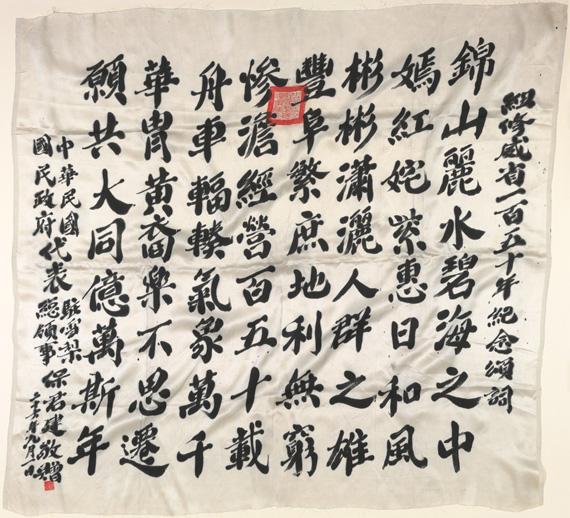 紐修威省一百五十年紀念頌詞
錦山麗水碧海之中
嫣紅姹紫惠日和風
彬彬瀟灑人群之雄
豐阜繁庶地利無窮
慘澹經營百五十載
舟車輻輳氣象萬千
華胄黃裔樂不思遷
願共大同億萬斯年
中華民國
國民政府
代表
駐雪梨
總領事
保君建敬贈
年九月一日